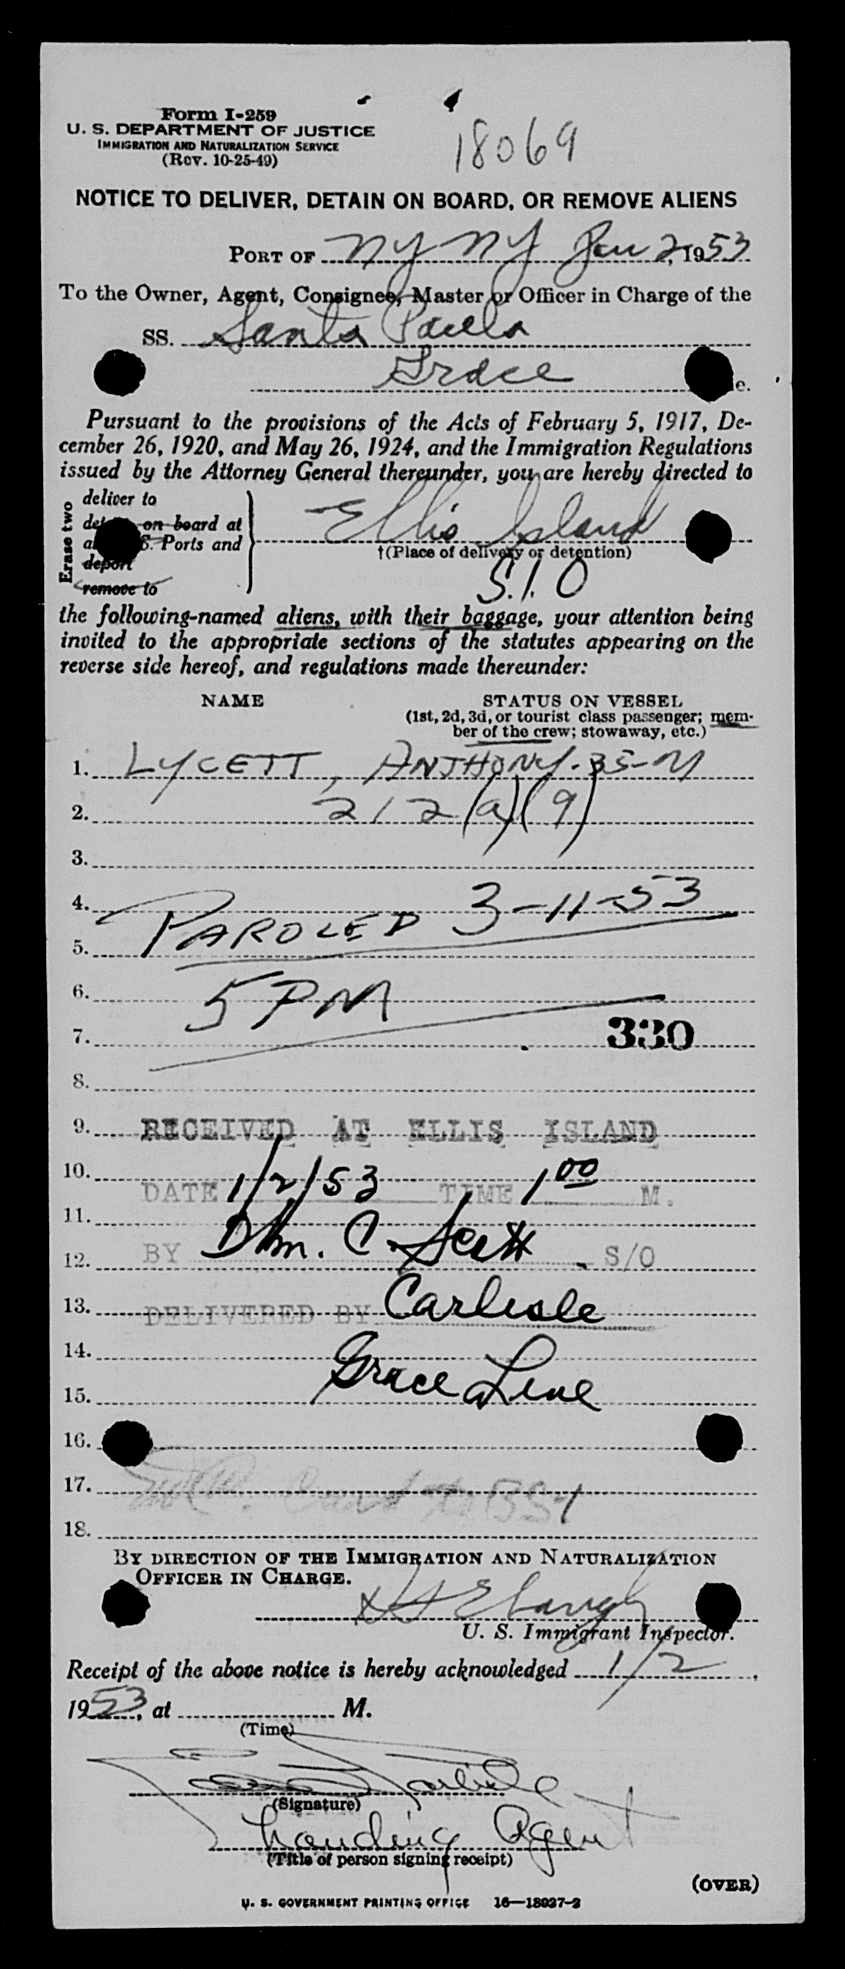 Form I-259
18069
U. S. DEPARTMENT OF JUSTICE
IMMIGRATION AND NATURALIZATION SERVICE
(Rev. 10-25-49)
NOTICE TO DELIVER, DETAIN ON BOARD, OR REMOVE ALIENS
PORT OF NY NY Jan 2, 1953
To the Owner, Agent, Consignee, Master or Officer in Charge of the
SS. Santa Paula
Grace e.
Pursuant to the provisions of the Acts of February 5, 1917, De-
cember 26, 1920, and May 26, 1924, and the Immigration Regulations
issued by the Attorney General thereunder, you are hereby directed to
Erase two
deliver to
on board at Ellis Island
S. Ports and
†(Place of delivery or detention)
deport
remove to S.I.O
the following-named aliens, with their baggage, your attention being
invited to the appropriate sections of the statutes appearing on the
reverse side hereof, and regulations made thereunder:
NAME STATUS ON VESSEL
(1st, 2d, 3d, or tourist class passenger; mem-
ber of the crew; stowaway, etc.)
1. LYCETT, ANTHONY - 35-M
2. 212(a)(9)
3.
4.
PAROLED 3-11-53
5.
6. 5 PM
7. 330
8.
9. RECEIVED AT ELLIS ISLAND
10.
DATE 1/2/53 TIME 1 00 M.
11.
12. BY Wm. C. Scott S/O
13. DELIVERED BY Carlisle
14.
Grace Line
15.
16.
17. to BSI
18.
BY DIRECTION OF THE IMMIGRATION AND NATURALIZATION
OFFICER IN CHARGE.
U. S. Immigrant Inspector.
Receipt of the above notice is hereby acknowledged 1/2,
1953, at M.
(Time)
Carlisle
(Signature)
Landing Agent
(Title of person signing receipt)
(OVER)
U. S. GOVERNMENT PRINTING OFFICE 16—18027-2